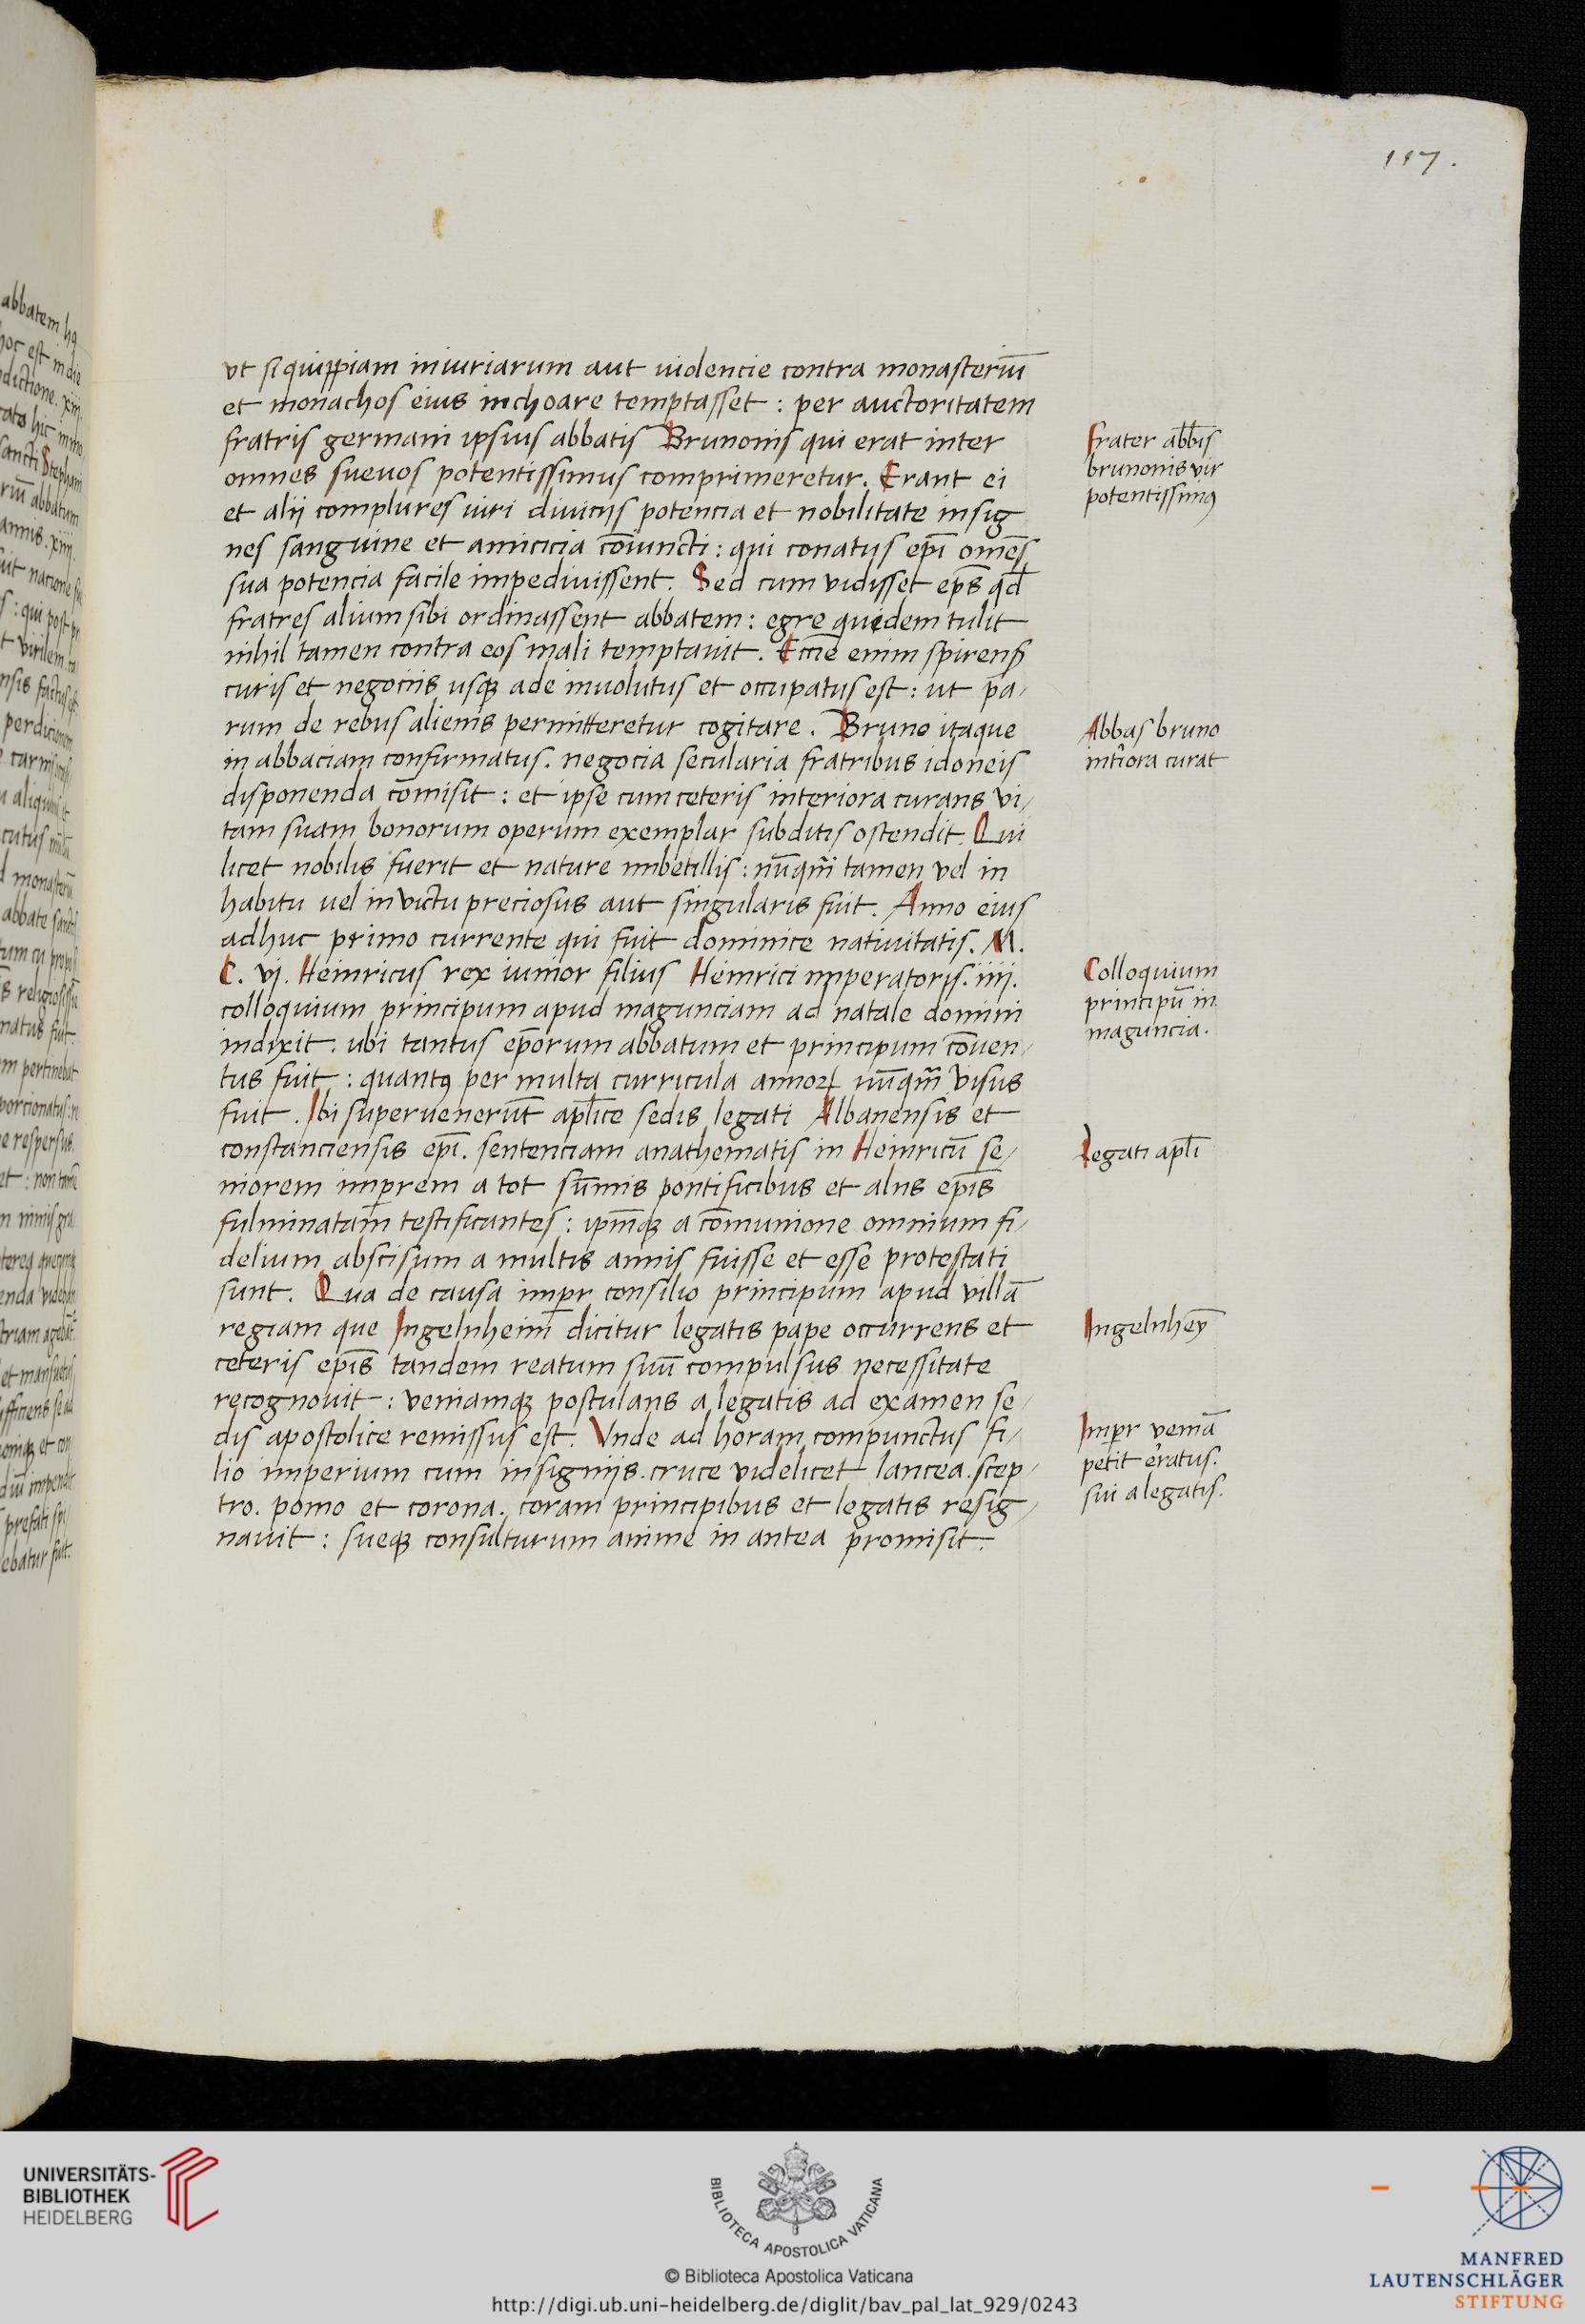 117.
ut si quippiam iniuriarum aut uiolencie contra monasteriū
et monachos eius inchoare temptasset : per auctoritatem
fratris germani ipsius abbatis Brunonis qui erat inter
omnes sueuos potentissimus comprimeretur. Erant ei
et alij complures uiri diuicijs potencia et nobilitate insig
nes sanguine et amicicia cōiuncti : qui conatus ep̄i om̄es
sua potencia facile impediuissent. Sed cum vidisset ep̄s qđ
fratres alium sibi ordinassent abbatem : egre quidem tulit
nihil tamen contra eos mali temptauit. Eccl̄ie enim spirens̄
curis et negociis usqꝫ adeo inuolutus et occupatus est : ut pa/
rum de rebus alienis permitteretur cogitare. Bruno itaque
in abbaciam confirmatus. negocia secularia fratribus idoneis
disponenda cōmisit : et ipse cum ceteris interiora curans vi/
tam suam bonorum operum exemplar subditis ostendit. Qui
licet nobilis fuerit et nature imbecillis : nūqm̄ tamen vel in
habitu uel in victu preciosus aut singularis fuit. Anno eius
adhuc primo currente qui fuit dominice natiuitatis. M.
C. vj. Heinricus rex iunior filius Heinrici imperatoris. iiij.
colloquium principum apud magunciam ad natale domini
indixit. ubi tantus ep̄orum abbatum et principum cōuen/
tus fuit : quantꝰ per multa curricula annoꝝ nūqm̄ visus
fuit. Ibi superuenerūt apl̄ice sedis legati Albanensis et
constanciensis ep̄i. sentenciam anathematis in Heinricū se/
niorem imp̄rem a tot sūmis pontificibus et aliis ep̄is
fulminatam testificantes : ip̄mqꝫ a cōmunione omnium fi/
delium abscisum a multis annis fuisse et esse protestati
sunt. Qua de causa imp̄r consilio principum apud villā
regiam que Ingelnheim dicitur legatis pape occurrens et
ceteris ep̄is tandem reatum suū compulsus necessitate
recognouit : veniamqꝫ postulans a legatis ad examen se/
dis apostolice remissus est. Vnde ad horam compunctus fi/
lio imperium cum insigniis. cruce videlicet lancea. scep/
tro. pomo et corona. coram principibus et legatis resig/
nauit : sueqꝫ consulturum anime in antea promisit.
Frater abb̄is
brunonis vir
potentissimꝰ
Abbas bruno
int̄iora curat
Colloquium
principū in
maguncia.
Legati apl̄i
Ingelnheȳ
Imp̄r veniā
petit r̄eatus
sui a legatis.
UNIVERSITÄTS-
BIBLIOTHEK
HEIDELBERG
BIBLIOTECA APOSTOLICA VATICANA
© Biblioteca Apostolica Vaticana
http://digi.ub.uni-heidelberg.de/diglit/bav_pal_lat_929/0243
MANFRED
LAUTENSCHLÄGER
STIFTUNG